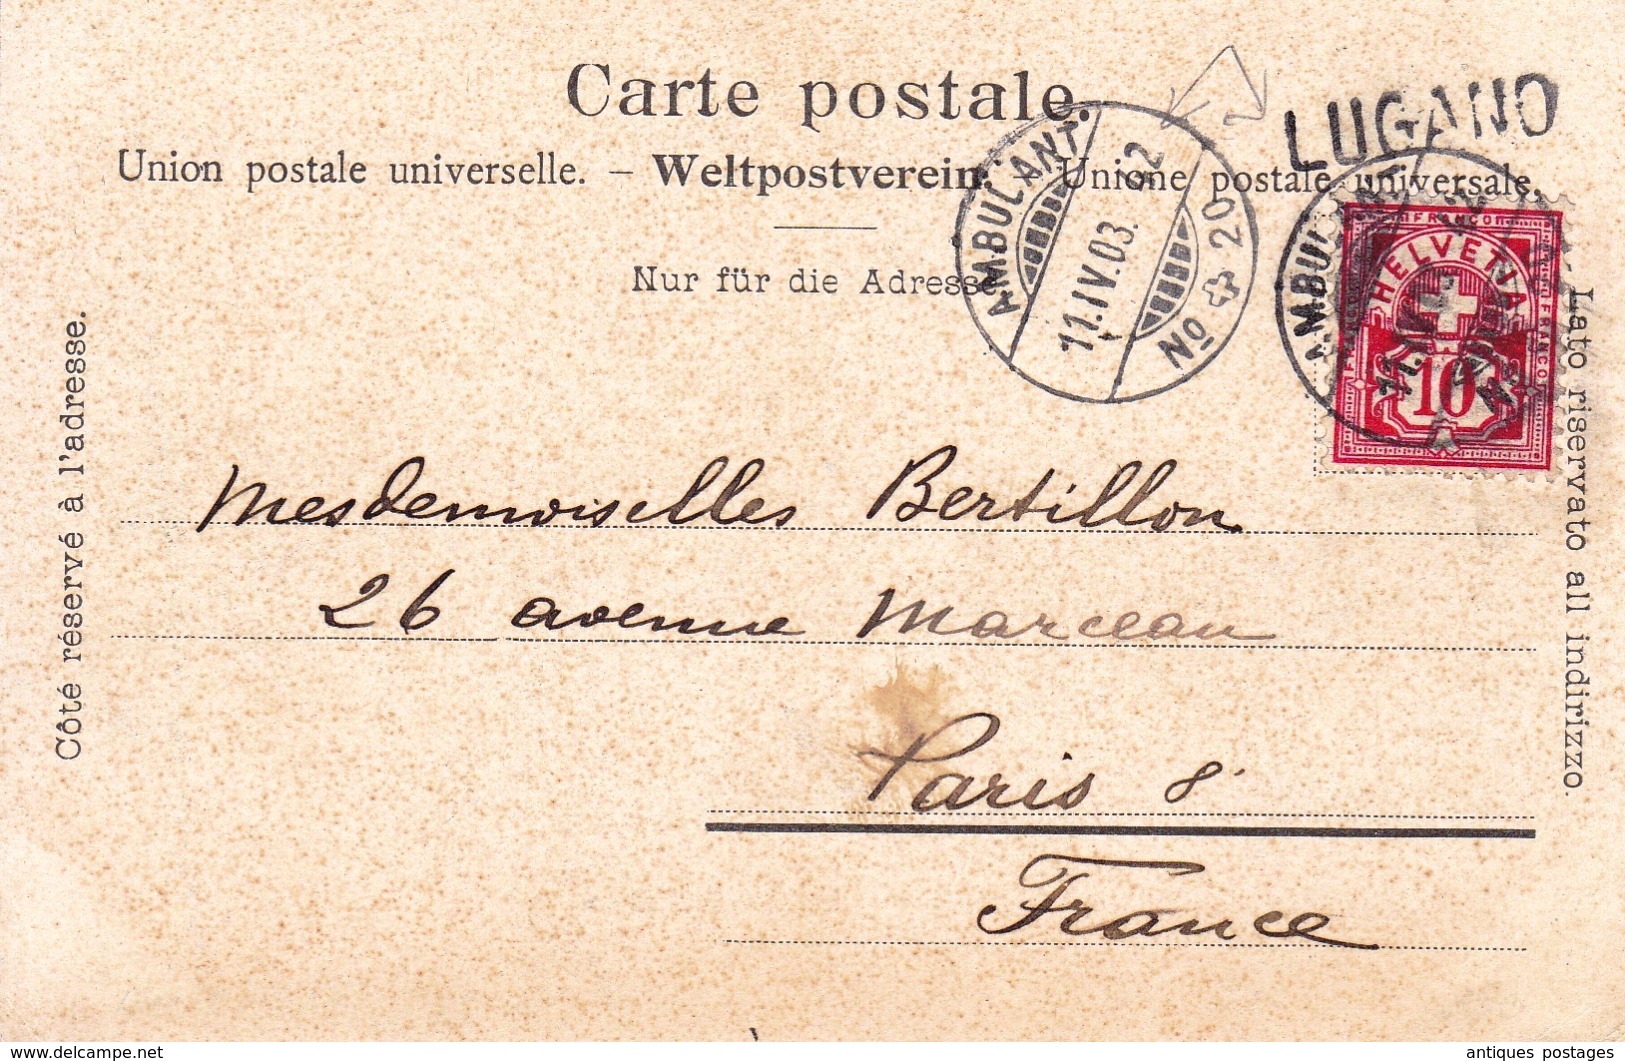 Carte postale.
LUGANO
Union postale universelle. – Weltpostverein. – Unione postale universale.
Nur für die Adresse
AMBULANT
11.IV.03. 92
No 20
AMBULANT
11.IV.
No
FRANCO
HELVETIA
FRANCO
FRANCO
10
Côté réservé à l'adresse.
Lato riservato all indirizzo.
Mesdemoiselles Bertillon
26 avenue Marceau
Paris 8
France
www.delcampe.net
antiques postages